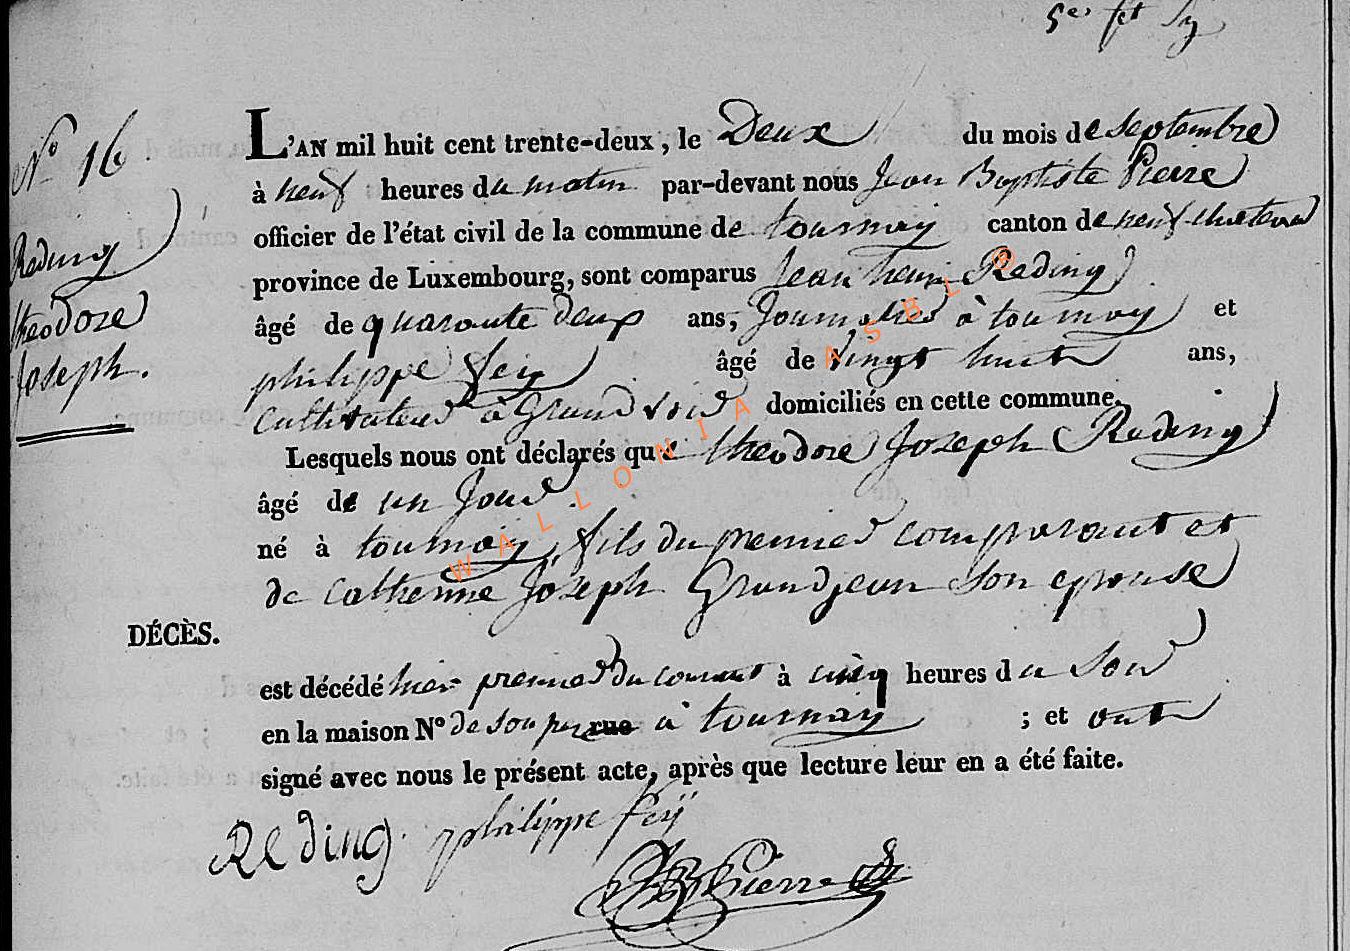 5e. f.et
N° 16
Reding
theodore
Joseph.
L'AN mil huit cent trente-deux, le Deux du mois de septembre
à neuf heures du matin par-devant nous Jean Baptiste Pierre
officier de l'état civil de la commune de tournay canton de neufchateau
province de Luxembourg, sont comparus Jean henri Reding
âgé de quarante deux ans, Journalier à tournay et
philippe Feij âgé de vingt huit ans,
Cultivateur à Grandvoir domiciliés en cette commune.
Lesquels nous ont déclarés que theodore Joseph Reding
âgé de un Jour
né à tournay, fils du premier comparant et
de Catherine Joseph Grandjean son epouse
DÉCÈS.
est décédé hier premier du courant à cinq heures du soir
en la maison N° de son per rue à tournay ; et ont
signé avec nous le présent acte, après que lecture leur en a été faite.
Reding philippe Feij
JB Pierre
WALLONIA ASBL ®